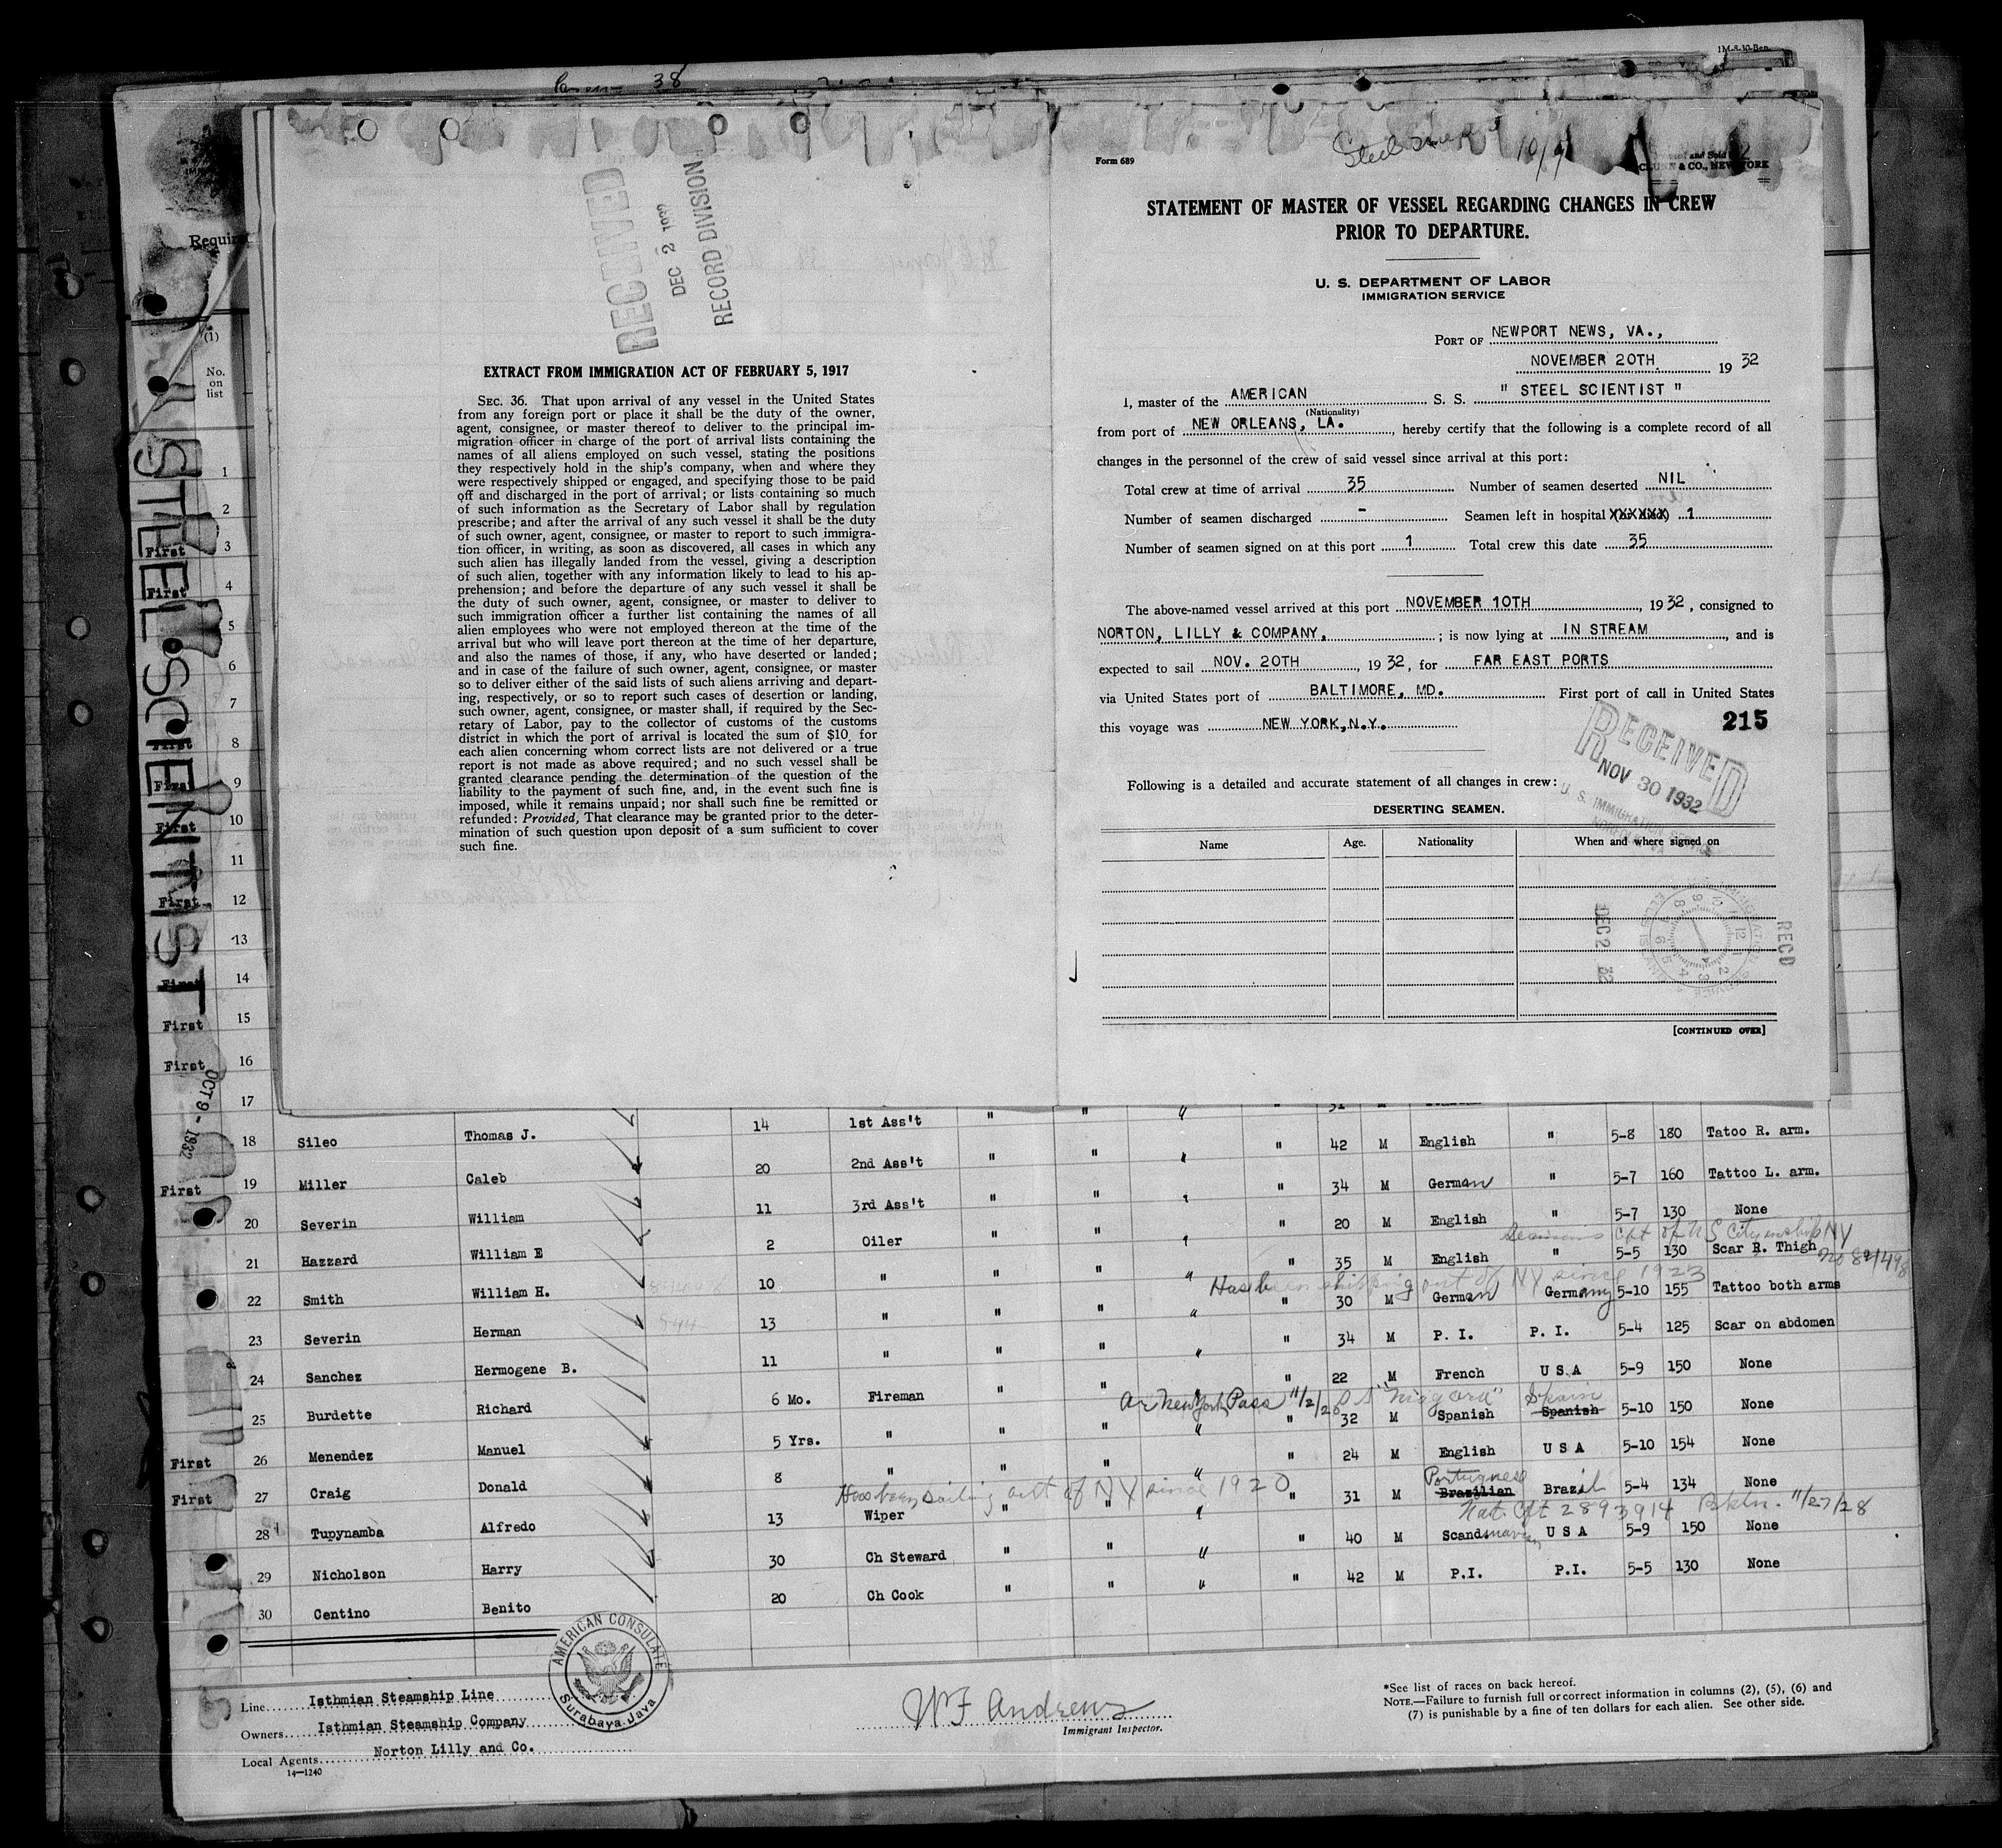 1M-8-30-Ben.
38
Requir
(1)
No.
on
list
STEEL SCIENTIST
OCT 9 - 1932
RECEIVED
DEC 2
RECORD DIVISION
EXTRACT FROM IMMIGRATION ACT OF FEBRUARY 5, 1917
SEC. 36. That upon arrival of any vessel in the United States
from any foreign port or place it shall be the duty of the owner,
agent, consignee, or master thereof to deliver to the principal im-
migration officer in charge of the port of arrival lists containing the
names of all aliens employed on such vessel, stating the positions
they respectively hold in the ship's company, when and where they
were respectively shipped or engaged, and specifying those to be paid
off and discharged in the port of arrival; or lists containing so much
of such information as the Secretary of Labor shall by regulation
prescribe; and after the arrival of any such vessel it shall be the duty
of such owner, agent, consignee, or master to report to such immigra-
tion officer, in writing, as soon as discovered, all cases in which any
such alien has illegally landed from the vessel, giving a description
of such alien, together with any information likely to lead to his ap-
prehension; and before the departure of any such vessel it shall be
the duty of such owner, agent, consignee, or master to deliver to
such immigration officer a further list containing the names of all
alien employees who were not employed thereon at the time of the
arrival but who will leave port thereon at the time of her departure,
and also the names of those, if any, who have deserted or landed;
and in case of the failure of such owner, agent, consignee, or master
so to deliver either of the said lists of such aliens arriving and depart-
ing, respectively, or so to report such cases of desertion or landing,
such owner, agent, consignee, or master shall, if required by the Sec-
retary of Labor, pay to the collector of customs of the customs
district in which the port of arrival is located the sum of $10 for
each alien concerning whom correct lists are not delivered or a true
report is not made as above required; and no such vessel shall be
granted clearance pending the determination of the question of the
liability to the payment of such fine, and, in the event such fine is
imposed, while it remains unpaid; nor shall such fine be remitted or
refunded: Provided, That clearance may be granted prior to the deter-
mination of such question upon deposit of a sum sufficient to cover
such fine.
Form 689
and Sold
& CO., NEW YORK
STATEMENT OF MASTER OF VESSEL REGARDING CHANGES IN CREW
PRIOR TO DEPARTURE.
U. S. DEPARTMENT OF LABOR
IMMIGRATION SERVICE
PORT OF NEWPORT NEWS, VA.,
NOVEMBER 20TH. 1932
I, master of the AMERICAN S. S. " STEEL SCIENTIST "
(Nationality)
from port of NEW ORLEANS, LA. , hereby certify that the following is a complete record of all
changes in the personnel of the crew of said vessel since arrival at this port:
Total crew at time of arrival 35 Number of seamen deserted NIL
Number of seamen discharged - Seamen left in hospital 1
Number of seamen signed on at this port 1 Total crew this date 35
The above-named vessel arrived at this port NOVEMBER 10TH , 1932, consigned to
NORTON, LILLY & COMPANY. ; is now lying at IN STREAM , and is
expected to sail NOV. 20TH , 1932, for FAR EAST PORTS
via United States port of BALTIMORE, MD. First port of call in United States
this voyage was NEW YORK,N.Y. 215
RECEIVED
NOV 30 1932
U. S. IMMIGRATION SERVICE
Following is a detailed and accurate statement of all changes in crew:
DESERTING SEAMEN.
Name Age. Nationality When and where signed on
DEC 2 32
REC'D
[CONTINUED OVER]
1
2
First 3
First 4
5
6
7
First 8
First 9
First 10
11
First 12
13
First 14
First 15
First 16
17
18 Sileo Thomas J. 14 1st Ass't " " " " 42 M English " 5-8 180 Tatoo R. arm.
First 19 Miller Caleb 20 2nd Ass't " " " " 34 M German " 5-7 160 Tattoo L. arm.
20 Severin William 11 3rd Ass't " " " " 20 M English " 5-7 130 None
Seamans Cft of US Citizenship NY
21 Hazzard William E 2 Oiler " " " " 35 M English " 5-5 130 Scar R. Thigh
Has been shipping out of NY since 1923
22 Smith William H. 10 " " " " " 30 M German Germany 5-10 155 Tattoo both arms
23 Severin Herman 13 " " " " " 34 M P. I. P. I. 5-4 125 Scar on abdomen
24 Sanchez Hermogene B. 11 " " " " " 22 M French U S A 5-9 150 None
Ar New York Pass 11/2/20 Spain
25 Burdette Richard 6 Mo. Fireman " " " " 32 M Spanish Spanish 5-10 150 None
First 26 Menendez Manuel 5 Yrs. " " " " " 24 M English U S A 5-10 154 None
Has been sailing out of NY since 1920 Portuguese
First 27 Craig Donald 8 " " " " " 31 M Brazilian Brazil 5-4 134 None
Nat. Cft 2893914 Bkln. 11/27/28
28 Tupynamba Alfredo 13 Wiper " " " " 40 M Scandinavian U S A 5-9 150 None
29 Nicholson Harry 30 Ch Steward " " " " 42 M P.I. P.I. 5-5 130 None
30 Centino Benito 20 Ch Cook
AMERICAN CONSULATE
Surabaya.Java
Line Isthmian Steamship Line
Owners Isthmian Steamship Company
Local Agents Norton Lilly and Co.
14-1240
W F Andrews
Immigrant Inspector.
*See list of races on back hereof.
NOTE.—Failure to furnish full or correct information in columns (2), (5), (6) and
(7) is punishable by a fine of ten dollars for each alien. See other side.